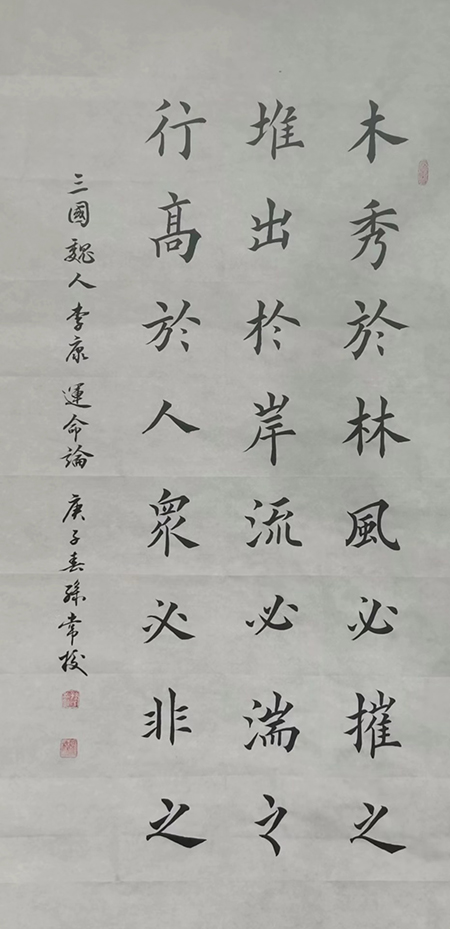 木秀於林風必摧之
堆出於岸流必湍之
行高於人眾必非之
三國魏人李康運命論 庚子春孫常